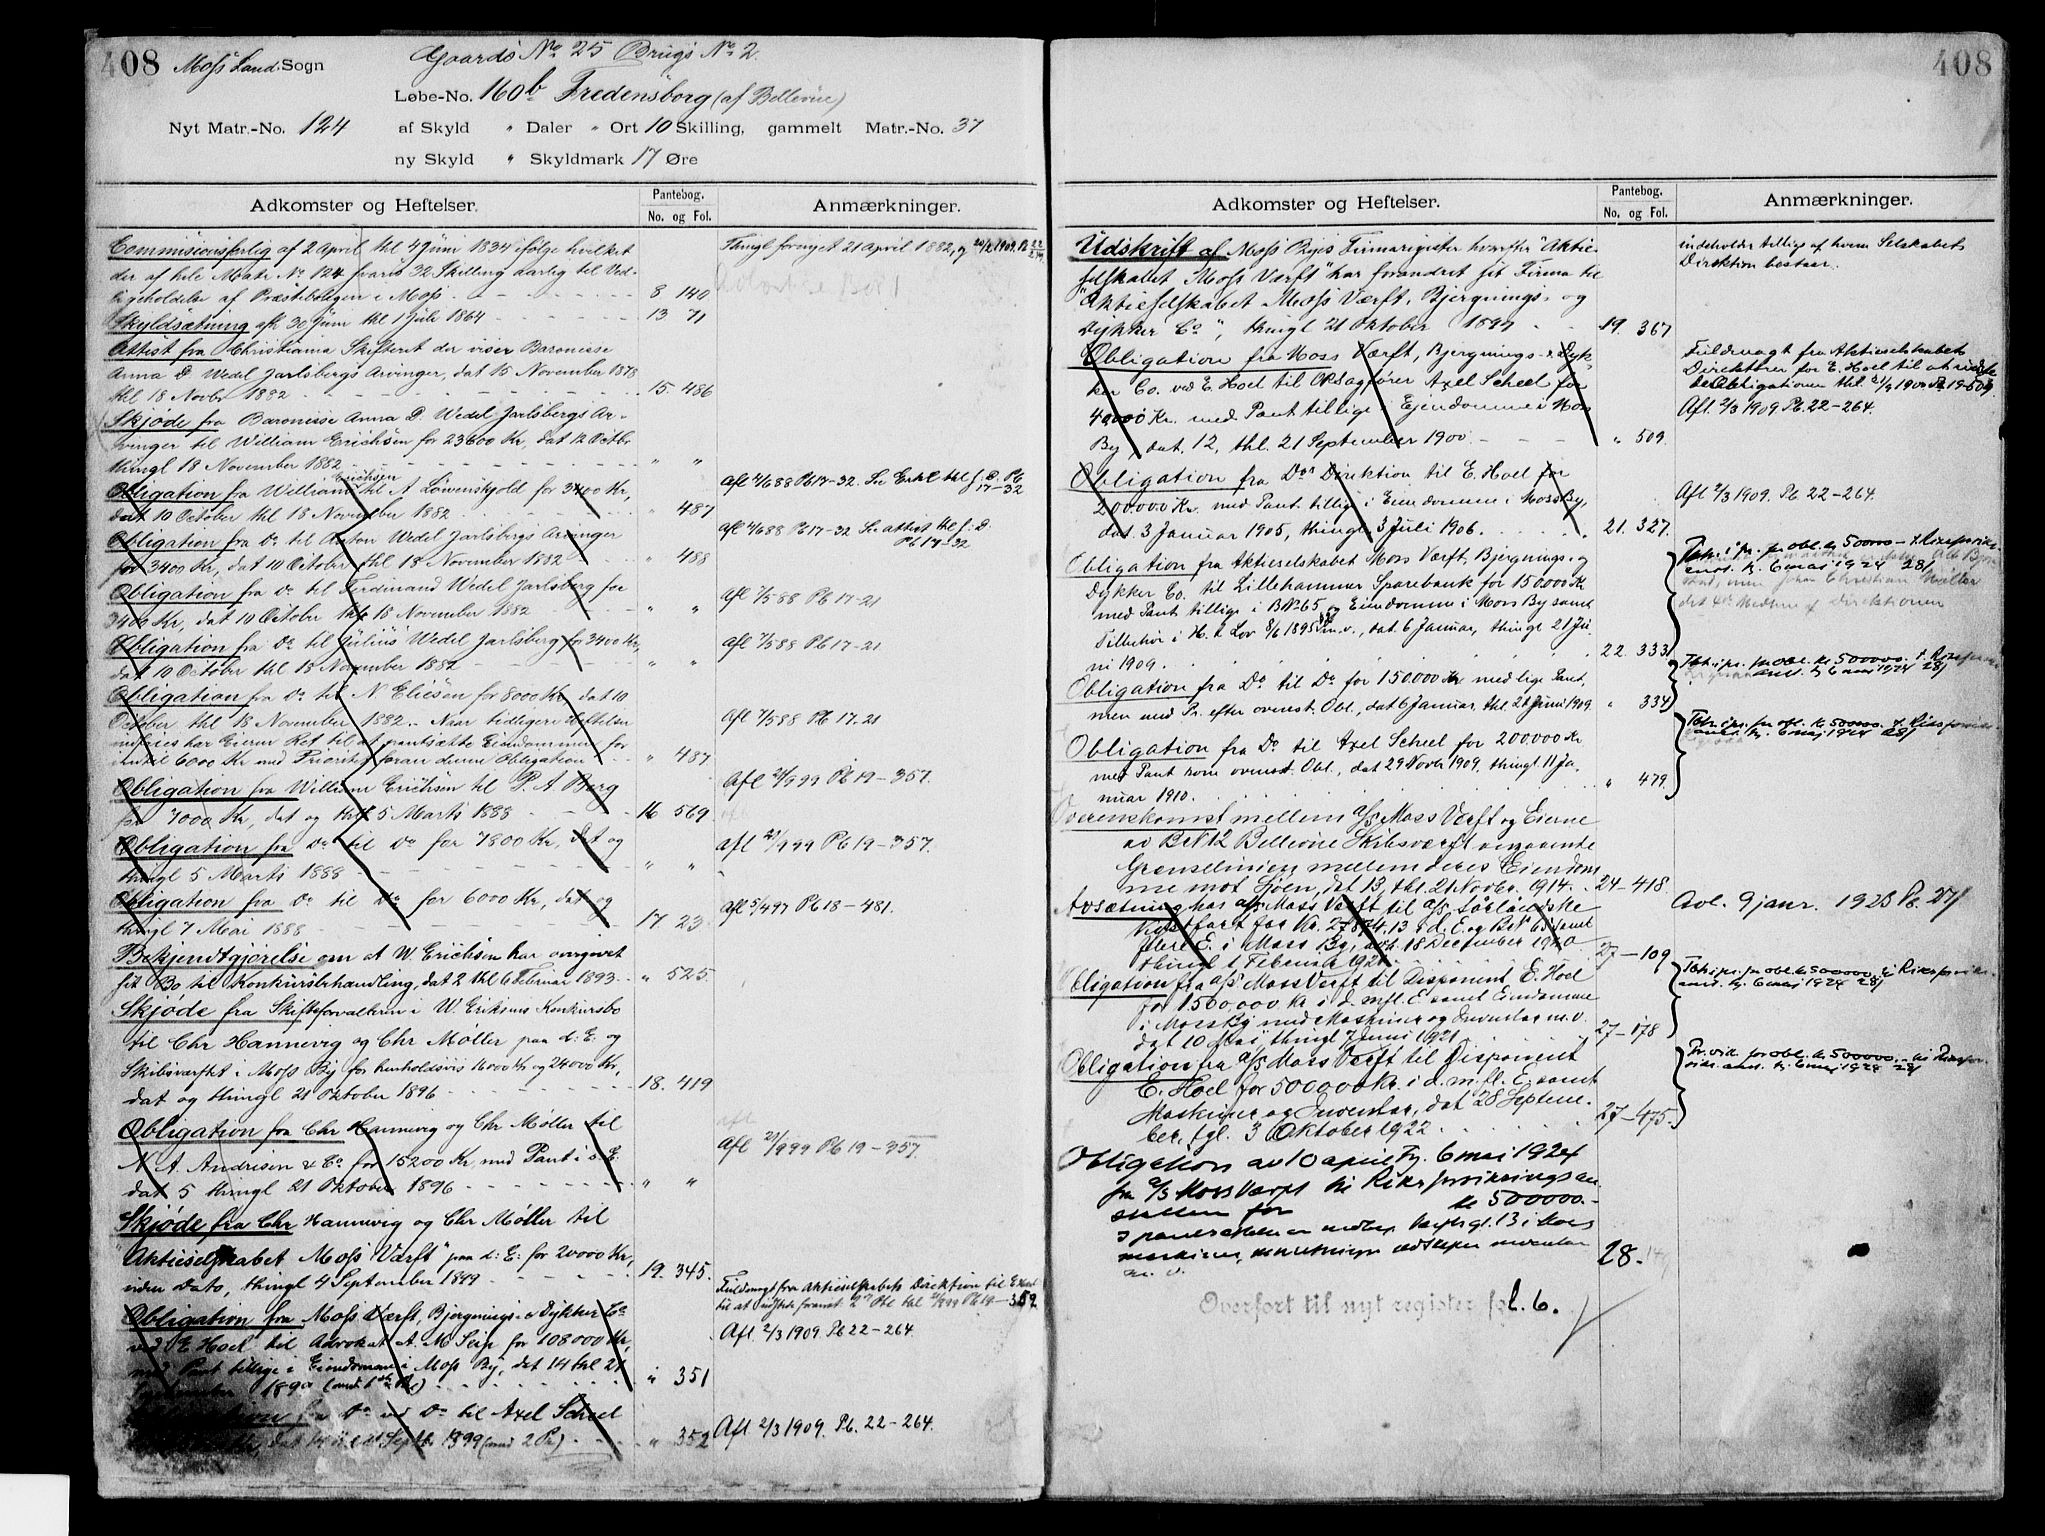 408
Moss Land. Sogn
Gaards No 25 Brugs No 2.
Løbe-No. 160b Fredensborg (af Bellevue)
Nyt Matr.-No. 124 af Skyld " Daler " Ort 10 Skilling, gammelt Matr.-No. 37
ny Skyld " Skyldmark 17 Øre
Adkomster og Heftelser. Pantebog. No. og Fol. Anmærkninger.
af 2 April thl 4 Juni 1834 ifølge hvilket Thingl fornyet 21 April 1882,
der af hele Matr No 124 svares 32 Skilling aarlig til Ved-
ligeholdelse af Præsteboligen i Moss 8 140
Skyldsætning afh 30 Juni thl 1 Juli 1864 13 71
Attest fra Christiania Skifteret der viser Baronesse
Anna D. Wedel Jarlsbergs Arvinger, dat 15 November 1878
thl 18 Novbr 1882 15. 486
Skjøde fra Baronesse Anna D. Wedel Jarlsbergs Ar-
vinger til William Erichsen for 23600 Kr, dat 12 Octbr.
thingl 18 November 1882 " "
Obligation fra William Erichsen til A Löwenskjold for 3400 Kr, afl 4/6 88 Pb 17-32.
dat 10 October thl 18 November 1882 " 487
Obligation fra Do til Anton Wedel Jarlsbergs Arvinger afl 4/6 88 Pb 17-32 Se attest thl f. D. Pb 17-32
for 3400 Kr, dat 10 October thl 18 November 1882 " 488
Obligation fra Do til Ferdinand Wedel Jarlsberg for afl 7/5 88 Pb 17-21
3400 Kr, dat 10 October thl 18 November 1882 " "
Obligation fra Do til Julius Wedel Jarlsberg for 3400 Kr, afl 7/5 88 Pb 17-21
dat 10 October thl 18 November 1882 " "
Obligation fra Do til N Eliesen for 8000 Kr, dat 10
October thl 18 November 1882. Naar tidligere Heftelser afl 7/5 88 Pb 17-21
har Eieren Ret til at pantsætte Eiendommen for
indtil 6000 Kr med Prioritet foran denne Obligation " 487
Obligation fra William Erichsen til P. A Berg Afl 21/9 99 Pb 19-357.
for 7000 Kr, dat og thl 5 Marts 1888 16 569
Obligation fra Do til Do for 7800 Kr, dat og afl 21/9 99 Pb 19-357.
thingl 5 Marts 1888 " "
Obligation fra Do til Do for 6000 Kr, dat og afl 5/4 97 Pb 18-481.
thingl 7 Mai 1888 17 23.
Bekjendtgjørelse om at W. Erichsen har overgivet
sit Bo til Konkursbehandling, dat 2 thl 6 Februar 1893 " 525.
Skjøde fra Skifteforvalteren i W. Eriksens Konkursbo
til Chr Hannevig og Chr Møller paa d: E: og
Skibsværftet i Moss By for henholdsvis 16000 Kr og 24000 Kr,
dat og thingl 21 Oktober 1896 18. 419
Obligation fra Chr Hannevig og Chr Møller til
N. A. Andresen & Co for 15200 Kr, med Pant i d: E: Afl 21/9 99 Pb 19-357.
dat 5 thingl 21 Oktober 1896 " "
Skjøde fra Chr Hannevig og Chr Møller til
"Aktieselskabet Moss Værft" paa d: E: for 20000 Kr,
uden Dato, thingl 4 September 1899 19. 345.
Fuldmagt fra Aktieselskabets Direktion til E Hoel
Obligation fra Moss Værft, Bjergnings- & Dykker Co
ved E Hoel til Advokat A. M Seip for 108000 Kr, Afl. 2/3 1909. Pb 22-264.
med Pant tillige i Eiendomme i Moss By, dat 14 thl 21 " 351
fra Do ved Do til Axel Scheel Afl 2/3 1909. Pb. 22-264.
1899 (med 2 Pr) " 352
408
Adkomster og Heftelser. Pantebog. No. og Fol. Anmærkninger.
Udskrift af Moss Byes Firmaregister hvorefter "Aktie- indeholder tillige af hvem Selskabets
selskabet Moss Værft" har forandret sit Firma til Direktion bestaar.
"Aktieselskabet Moss Værft, Bjergnings- og
Dykker Co", thingl 21 Oktober 1899 19. 367
Obligation fra Moss Værft, Bjergnings- & Dyk- Fuldmagt fra Aktieselskabets
ker Co. ved E. Hoel til Oksagfører Axel Scheel for Direktører for E. Hoel til at
40000 Kr. med Pant tillige i Eiendomme i Moss Afl. 2/3 1909 Pb. 22-264.
By, dat. 12, thl. 21 September 1900 " 509.
Obligation fra Dos Direktion til E. Hoel for
200.000 Kr. med Pant tillige i Eiendomme i Moss By, Afl 2/3 1909. Pb 22-264.
dat. 3 Januar 1905, thingl 3 Juli 1906 21. 327.
Obligation fra Aktieselskabet Moss Værft, Bjergnings- og
Dykker Co. til Lillehammer Sparebank for 150.000 Kr
med Pant tillige i B No 65 og Eiendomme i Moss By samt
Tilbehør i H. t Lov 8/6 1895 m.v., dat. 6 Januar, thingl 21 Ju-
ni 1909. 22 333
Obligation fra Do til Do for 150.000 Kr med lige Pant,
men med Pr. efter ovenst. Obl., dat 6 Januar, thl. 21 Juni 1909. " 334
Obligation fra Do til Axel Scheel for 200.000 Kr
med Pant som ovenst. Obl., dat 29 Novbr 1909, thingl. 11 Ja-
nuar 1910. " 479.
Overenskomst mellem a/s Moss Værft og Eierne
av B No 12 Bellevue Skibsværft angaaende
Grænselinien mellem deres Eiendom-
me mot Sjøen, dat 13, thl. 21 Novbr. 1914. 24-418.
Avsætning hos a/s Moss Værft til a/s Sørlandske Avl. 9 janr. 1923 Pb. 27/
for Kr. 27874,13 i d. E. og B No 65 samt
flere E. i Moss By, avh. 18 December 1920
thingl 1 Februar 1921 27-109
Obligation fra a/s Moss Værft til Disponent E. Hoel
for 1500,000 Kr i d. m.fl. E samt Eiendomme
i Moss By med Maskiner og Inventar m.v.
dat 10 Mai, thingl 7 Juni 1921 27-178
Obligation fra a/s Moss Værft til Disponent
E. Hoel for 500000 Kr. i d. m. fl. E. samt
Maskiner og Inventar, dat 28 Septem-
ber, tgl. 3 Oktober 1922 27-475.
Obligation av 10 april tg. 6 mai 1924
fra a/s Moss Værft til Riksforsikringsan-
stalten for kr 500000.-
28.
Overført til nyt register fol. 6.